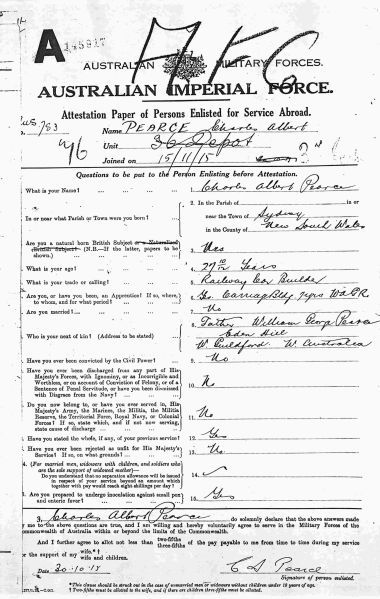 A
145917
A.F.C.
AUSTRALIAN MILITARY FORCES.
AUSTRALIAN IMPERIAL FORCE.
Attestation Paper of Persons Enlisted for Service Abroad.
783
Name PEARCE Charles Albert
Unit 36 Depot
Joined on 15/11/15
Questions to be put to the Person Enlisting before Attestation.
What is your Name? 1. Charles Albert Pearce
In or near what Parish or Town were you born? 2. In the Parish of in or
near the Town of Sydney
in the County of New South Wales
Are you a natural born British Subject or a Naturalised
British Subject? (N.B.—If the latter, papers to be
shown.) 3. Yes
What is your age? 4. 27 Years
What is your trade or calling? 5. Railway Car Builder
Are you, or have you been, an Apprentice? If so, where,
to whom, and for what period? 6. Carriage Bldg
Are you married? 7. No
Who is your next of kin? (Address to be stated) 8. Father William George Pearce
Eden Hill
W. Guildford. W. Australia
Have you ever been convicted by the Civil Power? 9. No
Have you ever been discharged from any part of His
Majesty's Forces, with Ignominy, or as Incorrigible and
Worthless, or on account of Conviction of Felony, or of a
Sentence of Penal Servitude, or have you been dismissed
with Disgrace from the Navy? 10. No
Do you now belong to, or have you ever served in, His
Majesty's Army, the Marines, the Militia, the Militia
Reserve, the Territorial Force, Royal Navy, or Colonial
Forces? If so, state which, and if not now serving,
state cause of discharge 11. No
Have you stated the whole, if any, of your previous service? 12. Yes
Have you ever been rejected as unfit for His Majesty's
Service? If so, on what grounds? 13. No
(For married men, widowers with children, and soldiers who
are the sole support of widowed mother—
Do you understand that no separation allowance will be issued
in respect of your service beyond an amount which
together with pay would reach eight shillings per day? 14.
Are you prepared to undergo inoculation against small pox
and enteric fever? 15. Yes
I, Charles Albert Pearce do solemnly declare that the above answers made
by me to the above questions are true, and I am willing and hereby voluntarily agree to serve in the Military Forces of the
Commonwealth of Australia within or beyond the limits of the Commonwealth.
And I further agree to allot not less than two-fifths
three-fifths of the pay payable to me from time to time during my service
for the support of my wife.*†
wife and children.
Date 30.10.15 C A Pearce
Signature of person enlisted.
*This clause should be struck out in the case of unmarried men or widowers without children under 18 years of age.
†Two-fifths must be allotted to the wife, and if there are children three-fifths must be allotted.